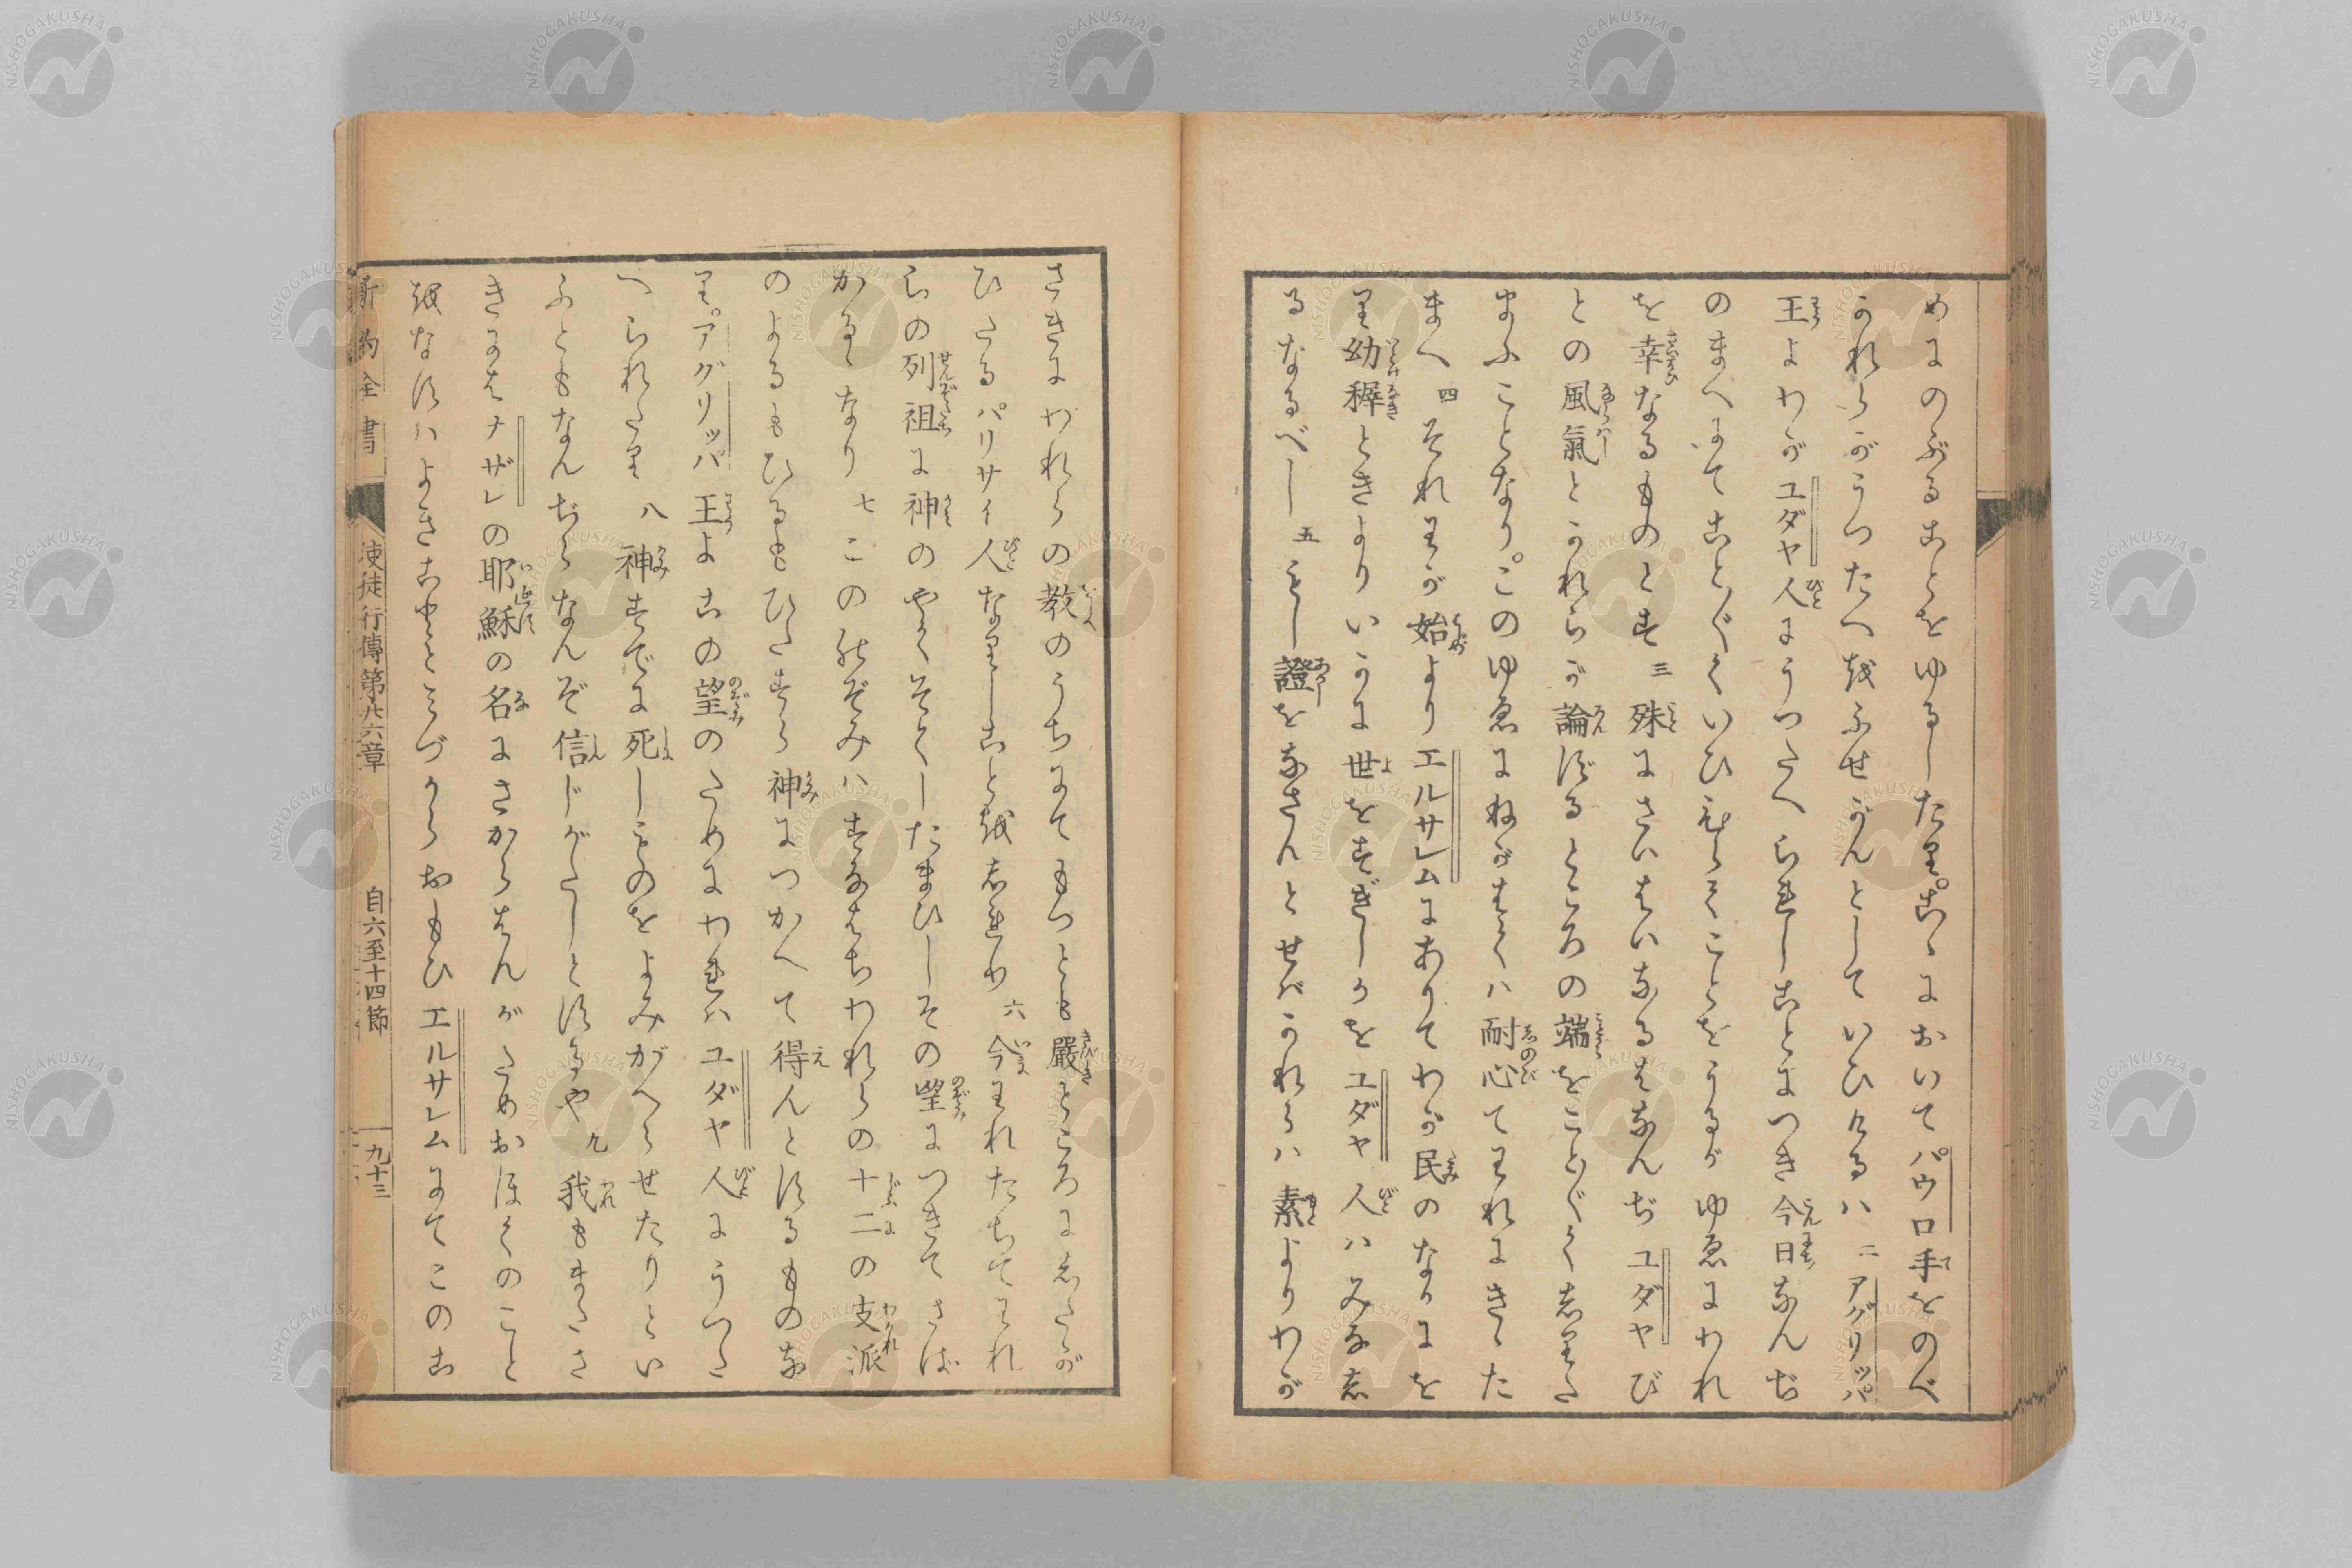 めにのぶることをゆるしたり。こゝにおいてパウロ手をのべ
かれらがうつたへをふせがんとしていひけるハ 二 アグリッパ
王よわがユダヤ人にうつたへられしことにつき今日なんぢ
のまへにてことごとくいひひらくことをうるがゆゑにわれ
を幸なるものとす 三 殊にさいはひなるはなんぢユダヤび
との風氣とかれらが論ずるところの端をことごとくしりた
まふことなり。このゆゑにねがはくハ耐心てわれにきゝた
まへ 四 それわが始よりエルサレムにありてわが民のなかにを
り幼穉ときよりいかに世をすぎしかをユダヤ人ハみなし
るなるべし 五 もし證をなさんとせバかれらハ素よりわが
さきにわれらの教のうちにてもつとも嚴ところにしたが
ひたるパリサイ人なりしことをしれり 六 今われたちてわれ
らの列祖に神のやくそくしたまひしその望につきてさば
かるゝなり 七 この能ぞみハすなはちわれらの十二の支派
のよるもひるもひたすら神につかへて得んとするものな
り。アグリッパ王よこの望のためにわれハユダヤ人にうつた
へられたり 八 神すでに死しものをよみがへらせたりとい
ふともなんぢらなんぞ信じがたしとするや 九 我もまたさ
きにはナザレの耶穌の名にさからはんがためおほくのこと
をなすハよきことゝみづからおもひエルサレムにてこのこ
新約全書 使徒行傳第廿六章 自六至十四節 九十三
NISHOGAKUSHA